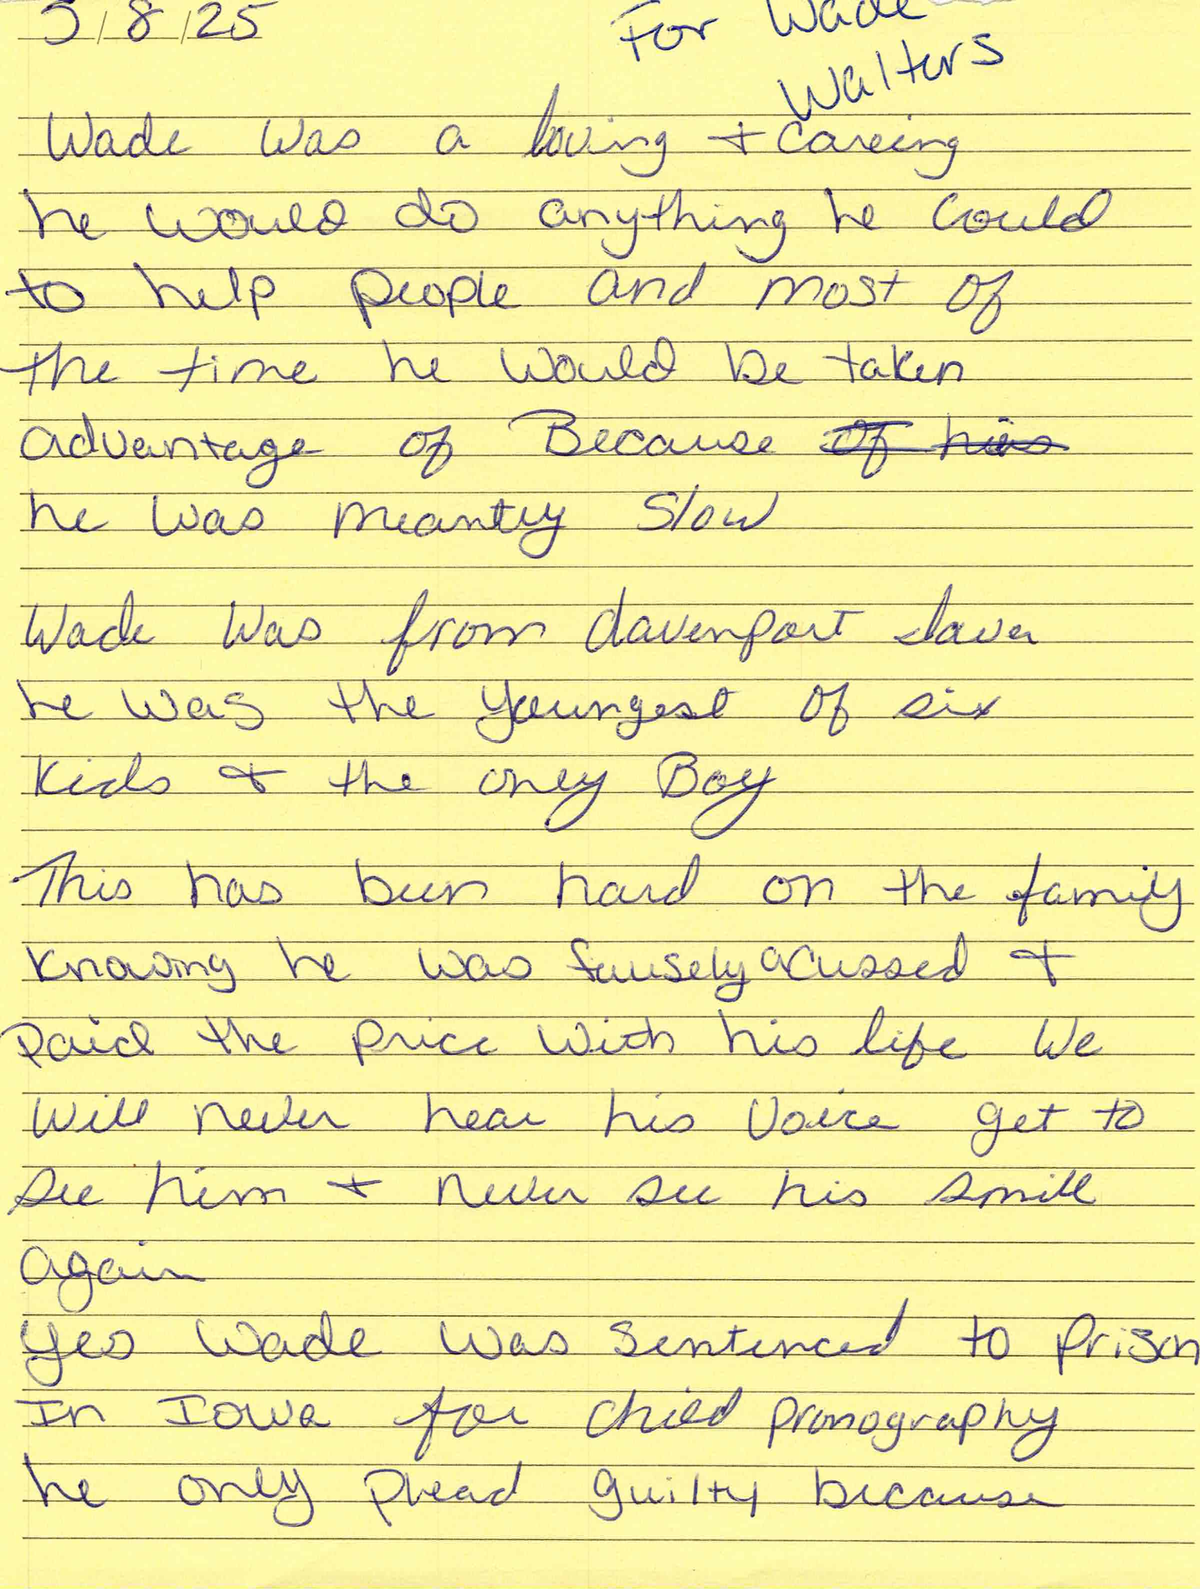 5/8/25
For Wade
Walters
Wade was a loving + careing
he would do anything he could
to help people and most of
the time he would be taken
advantage of Because of his
he was meantly slow
Wade was from davenport
he was the youngest of six
kids + the only Boy
This has been hard on the family
knowing he was fausely acussed +
paid the price with his life We
will never hear his voice get to
see him + never see his smile
again
yes Wade was sentenced to prison
In Iowa for child pronography
he only plead guilty because